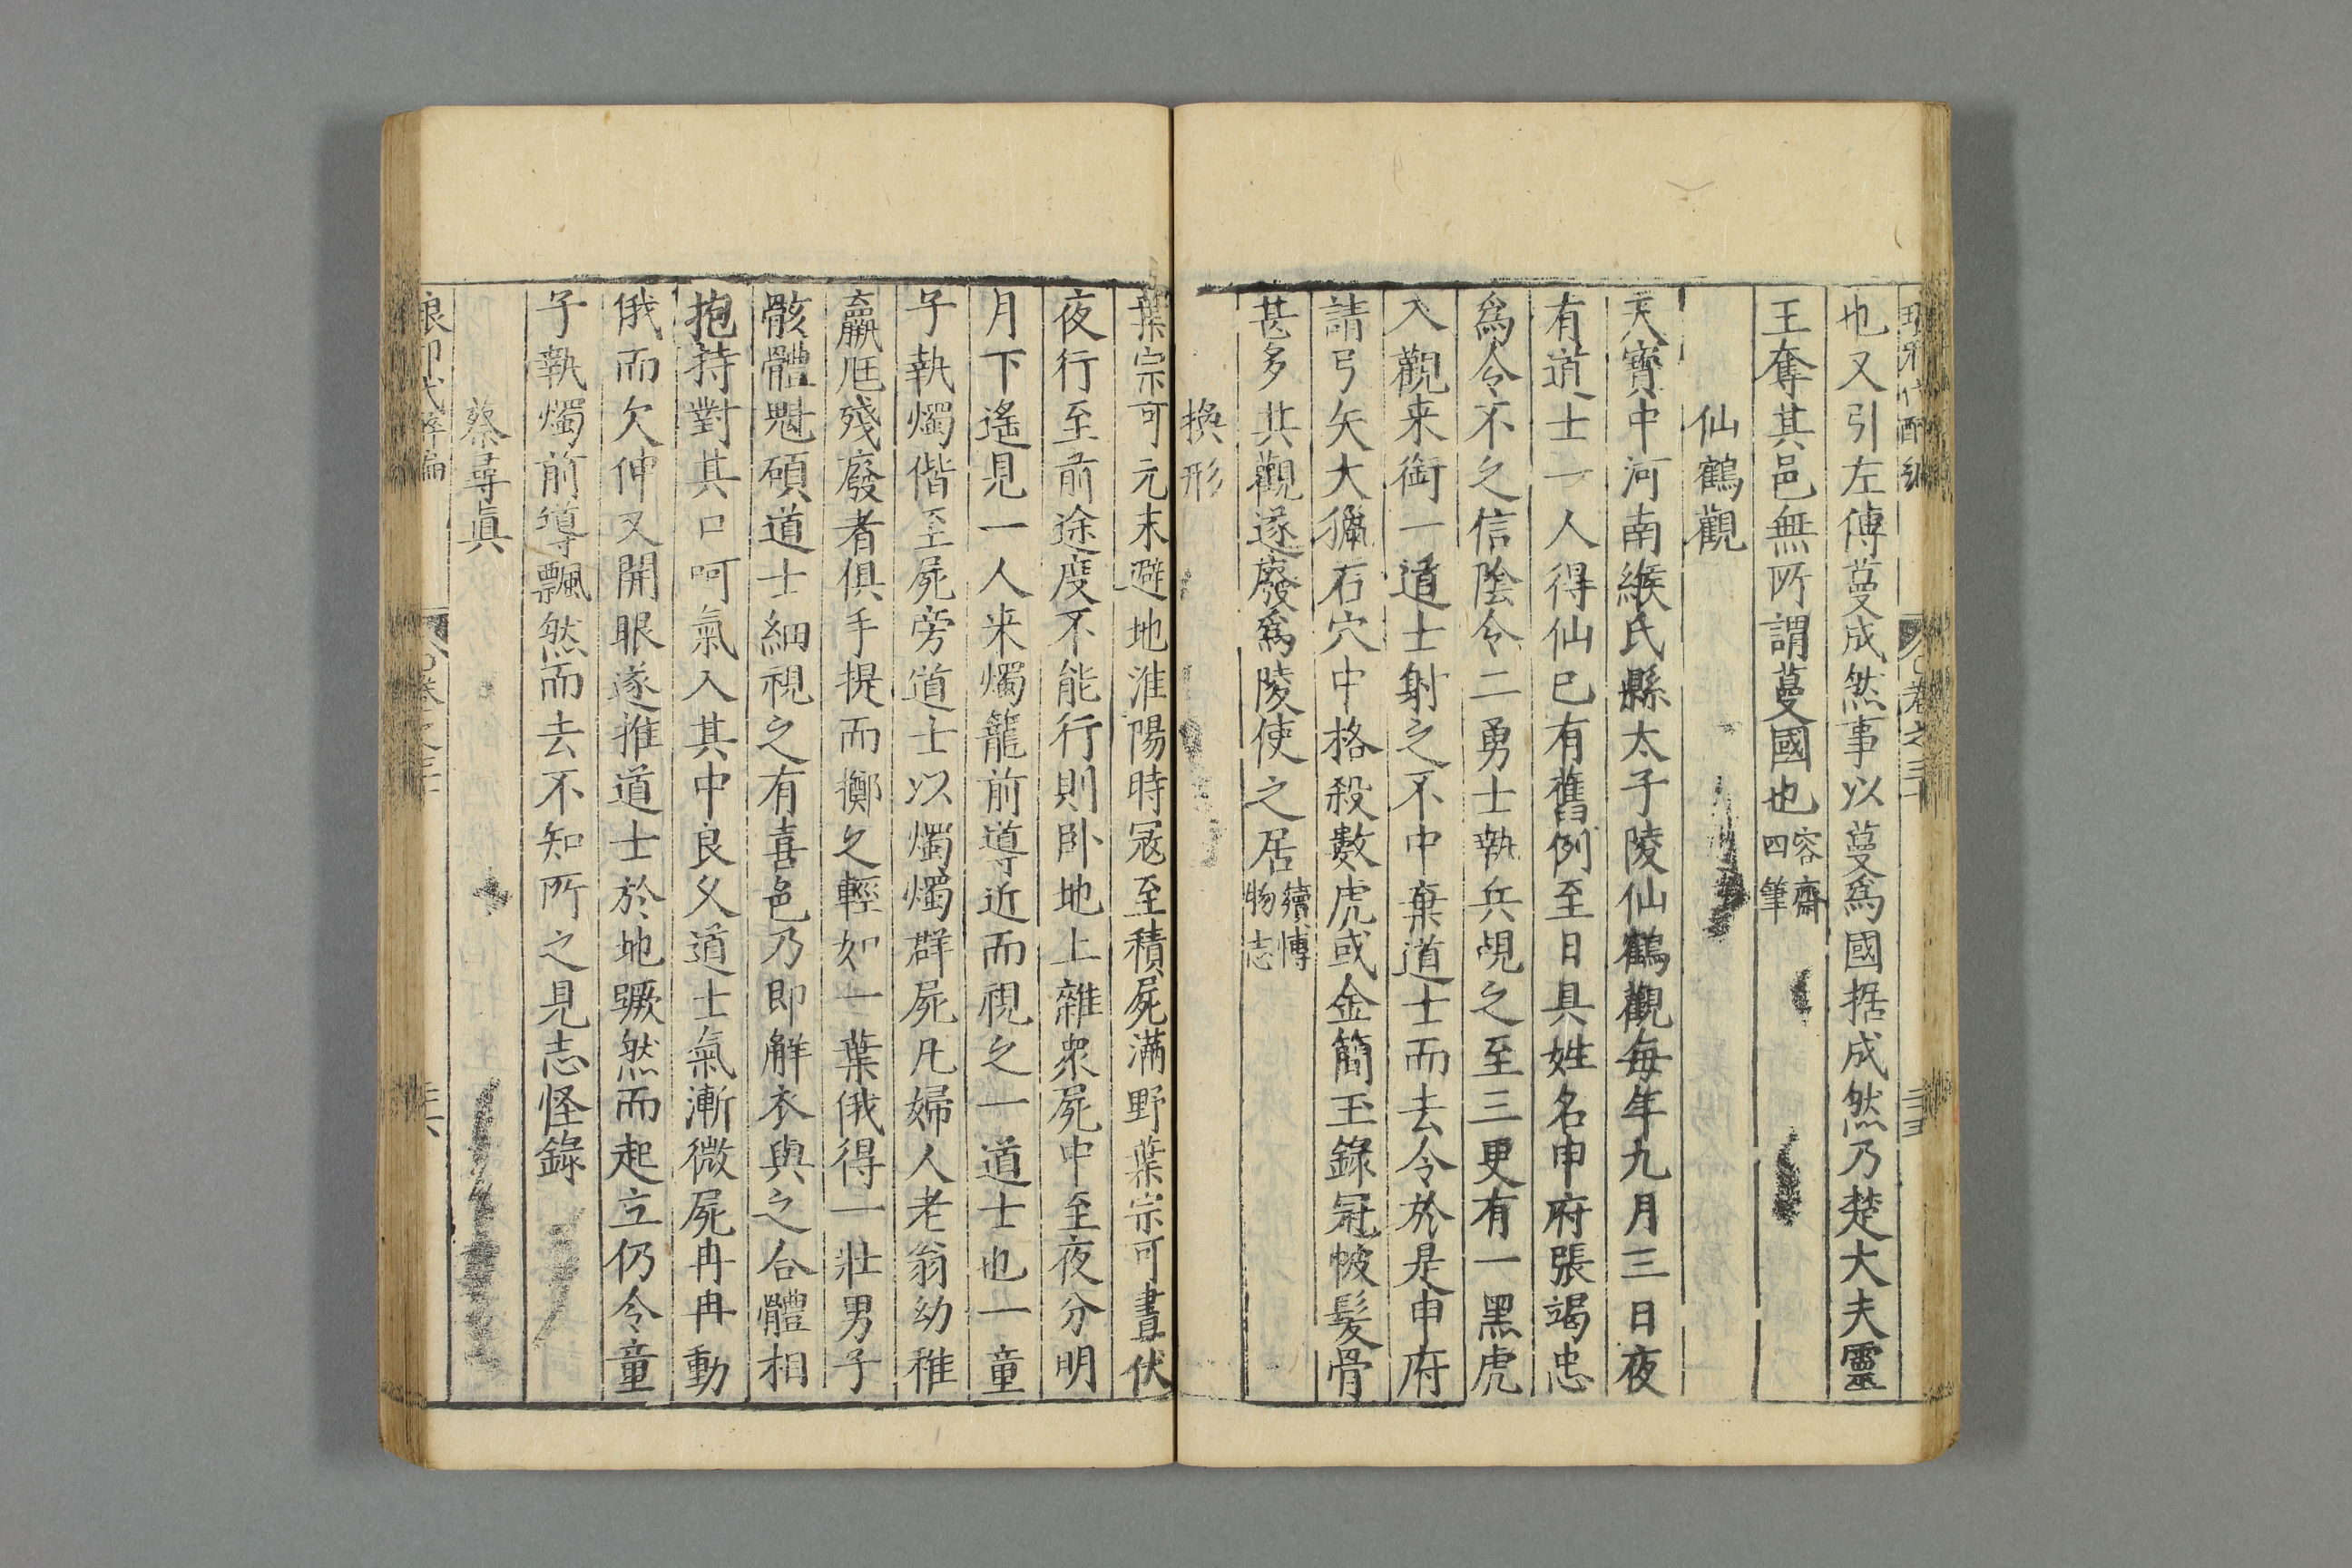 也又引左傳蔓成然事以蔓爲國据成然乃楚大夫靈
王奪其邑無所謂蔓國也容齋四筆
仙鶴觀
天寶中河南緱氏縣太子陵仙鶴觀每年九月三日夜
有道士一人得仙已有舊例至日具姓名申府張竭忠
爲令不之信陰令二勇士執兵覘之至三更有一黑虎
入觀来衘一道士射之不中棄道士而去令於是申府
請弓矢大獵石穴中格殺數虎或金簡玉錄冠帔髮骨
甚多其觀遂廢爲陵使之居續博物志
換形
葉宗可元末避地淮陽時冦至積屍滿野葉宗可晝伏
夜行至前途度不能行則卧地上雜衆屍中至夜分明
月下遙見一人来燭籠前導近而視之一道士也一童
子執燭偕至屍旁道士以燭燭群屍凡婦人老翁幼稚
羸尫殘廢者俱手提而擲之輕如一葉俄得一壯男子
骸體魁碩道士細視之有喜色乃即解衣與之合體相
抱持對其口呵氣入其中良乆道士氣漸微屍冉冉動
俄而欠伸又開眼遂推道士於地蹶然而起立仍令童
子執燭前導飄然而去不知所之見志怪錄
蔡尋眞